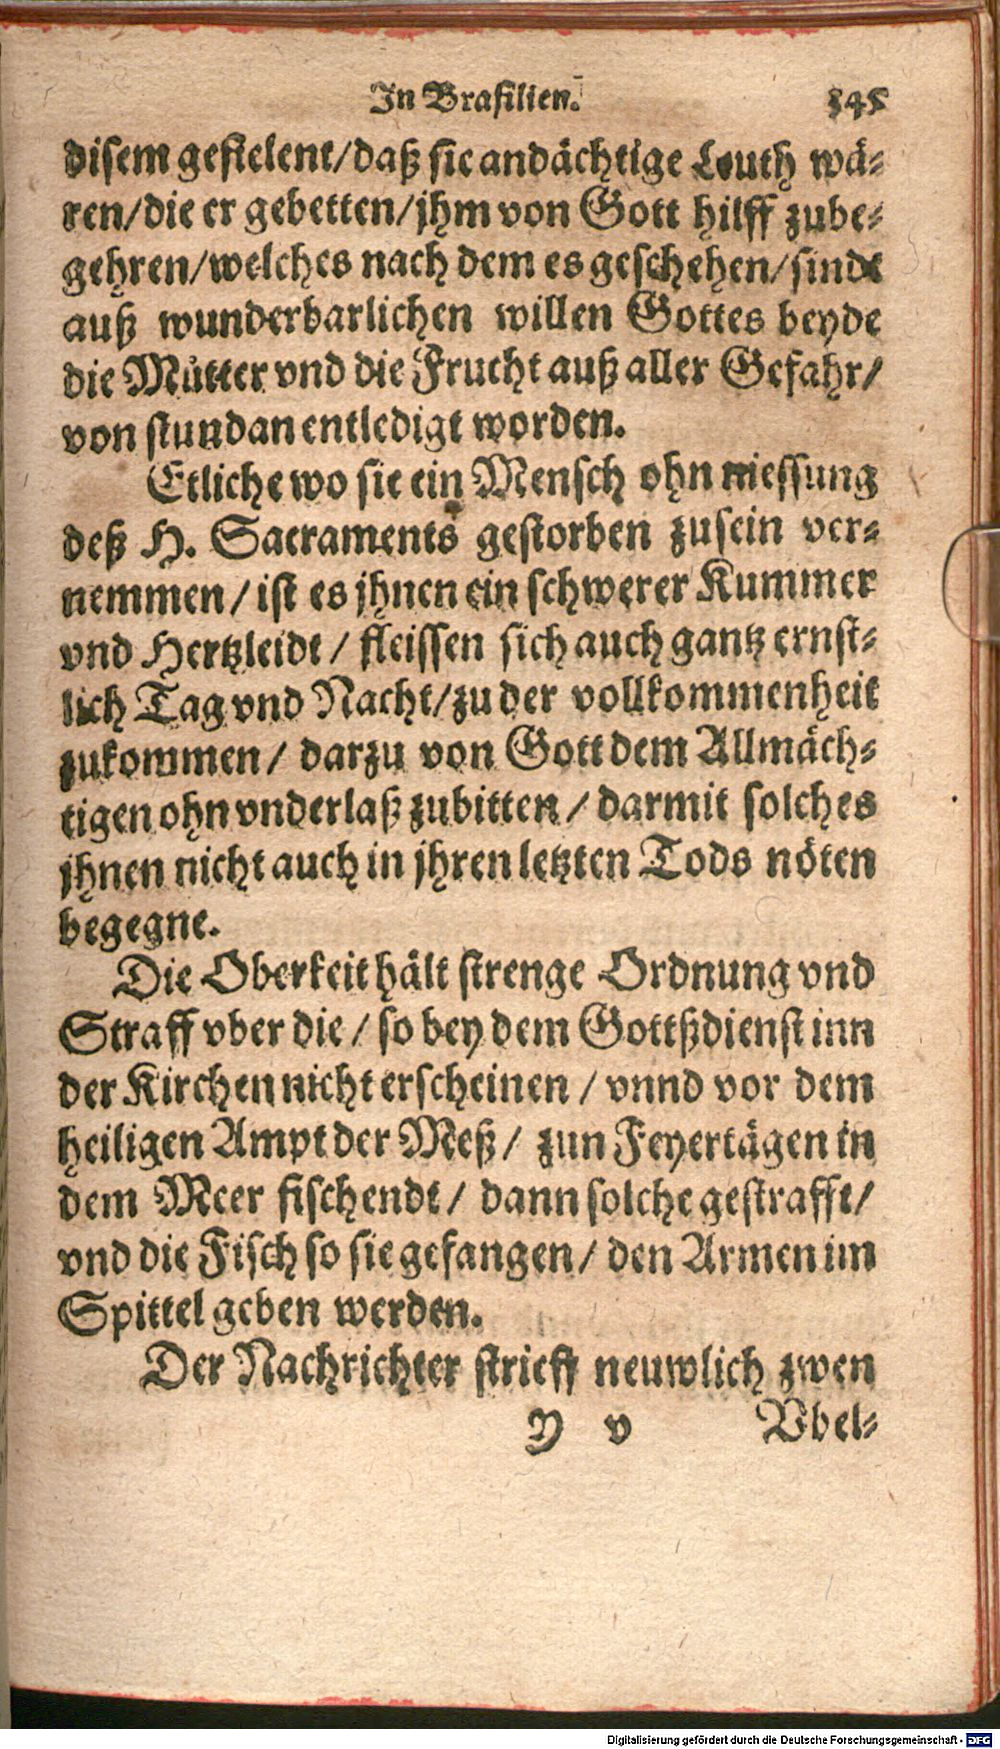 In Brasilien. 345
disem gefielent/daß sie andächtige Leuth wä-
ren/die er gebetten/jhm von Gott hilff zube-
gehren/welches nach dem es geschehen/sinde
auß wunderbarlichen willen Gottes beyde
die Mutter vnd die Frucht auß aller Gefahr/
von stundan entledigt worden.
Etliche wo sie ein Mensch ohn niessung
deß H. Sacraments gestorben zusein ver-
nemmen/ist es jhnen ein schwerer Kummer
vnd Hertzleidt/fleissen sich auch gantz ernst-
lich Tag vnd Nacht/zu der vollkommenheit
zukommen/darzu von Gott dem Allmäch-
tigen ohn vnderlaß zubitten/darmit solches
jhnen nicht auch in jhren letzten Tods nöten
begegne.
Die Oberkeit hält strenge Ordnung vnd
Straff vber die/so bey dem Gottßdienst inn
der Kirchen nicht erscheinen/vnnd vor dem
heiligen Ampt der Meß/zun Feyertägen in
dem Meer fischendt/dann solche gestrafft/
vnd die Fisch so sie gefangen/den Armen im
Spittel geben werden.
Der Nachrichter strieff neuwlich zwen
Y v Vbel-
Digitalisierung gefördert durch die Deutsche Forschungsgemeinschaft - DFG